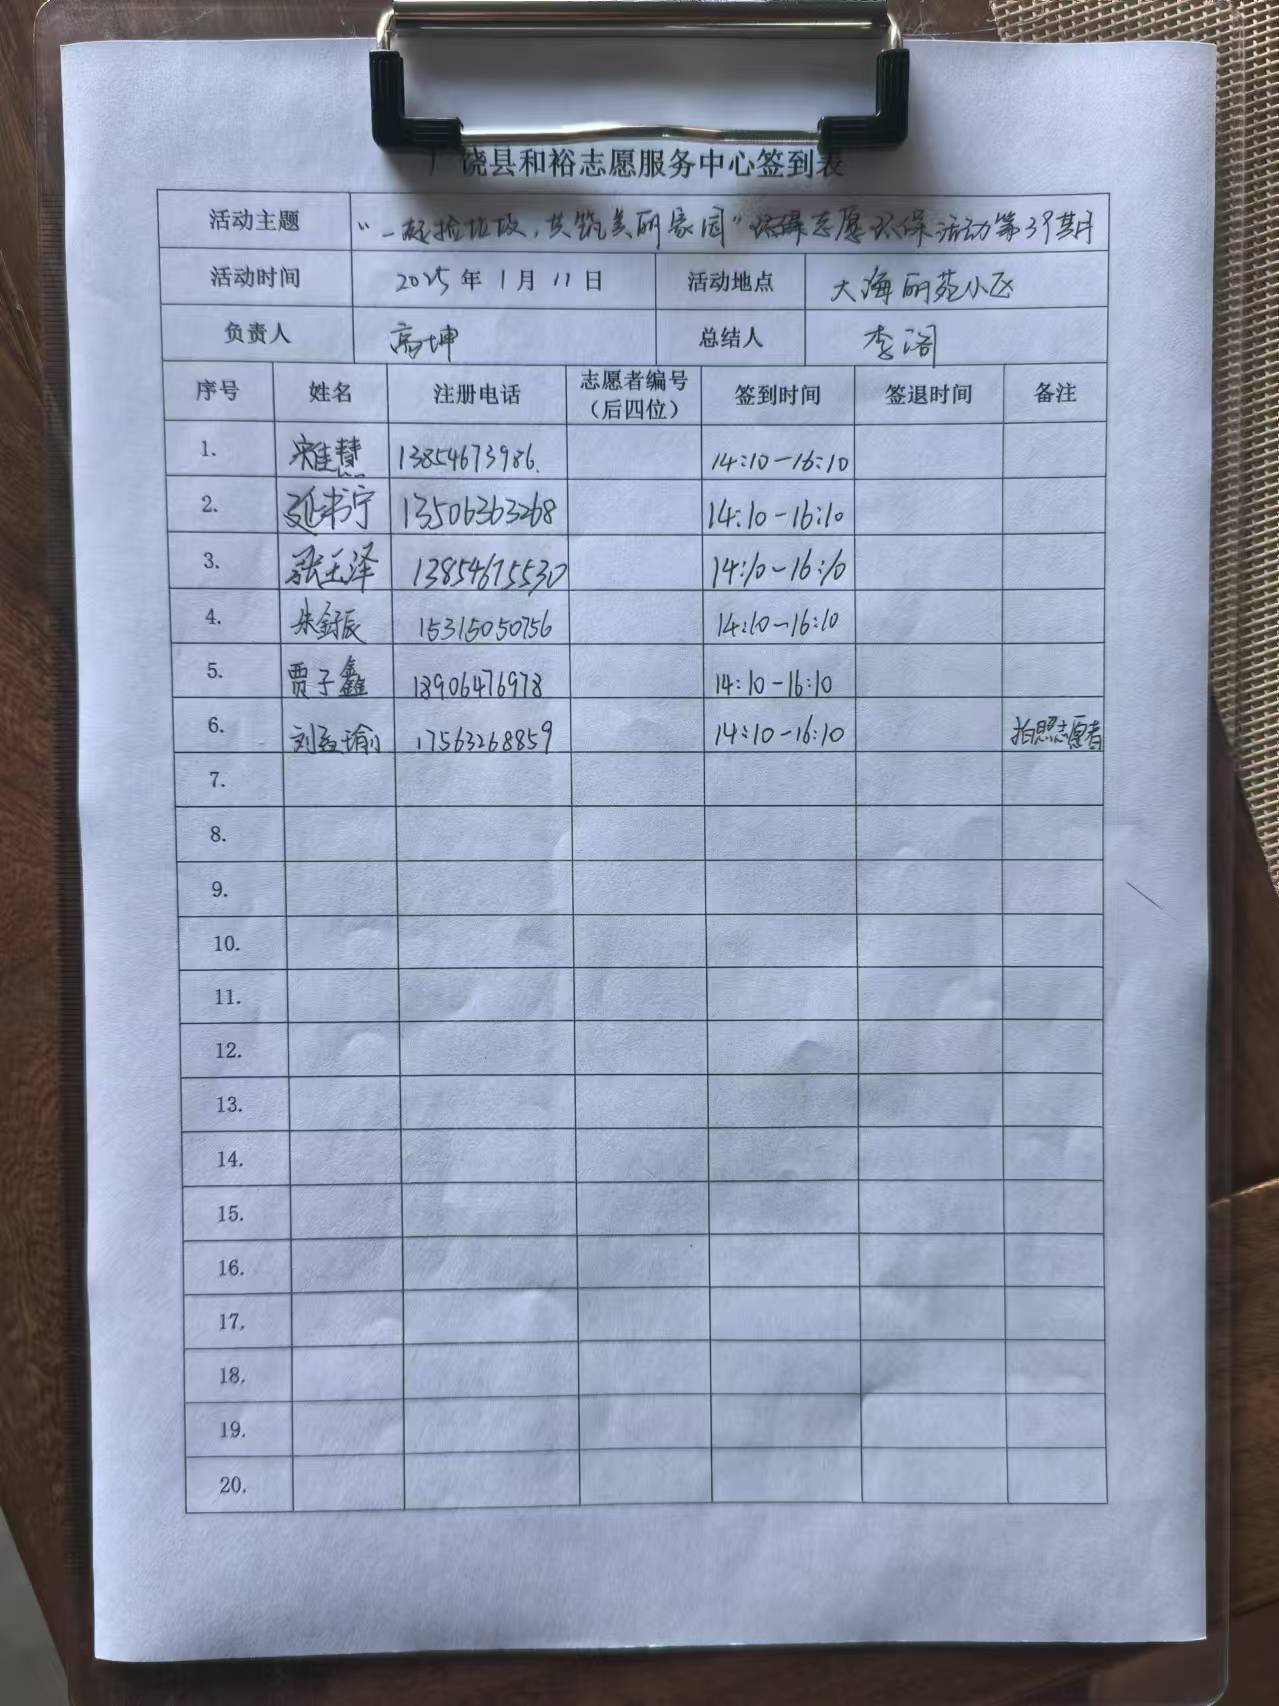 广饶县和裕志愿服务中心签到表
活动主题 “一起捡垃圾，共筑美丽家园”环保志愿环保活动第39期
活动时间 2025年1月11日 活动地点 大海丽苑小区
负责人 高坤 总结人 李
序号 姓名 注册电话 志愿者编号（后四位） 签到时间 签退时间 备注
1. 13854673986. 14:10-16:10
2. 延书宁 13506363268 14:10-16:10
3. 张玉泽 13854675530 14:10-16:10
4. 朱 辰 15315050756 14:10-16:10
5. 贾子鑫 18906476978 14:10-16:10
6. 刘 瑜 17563268859 14:10-16:10 拍照志愿者
7.
8.
9.
10.
11.
12.
13.
14.
15.
16.
17.
18.
19.
20.